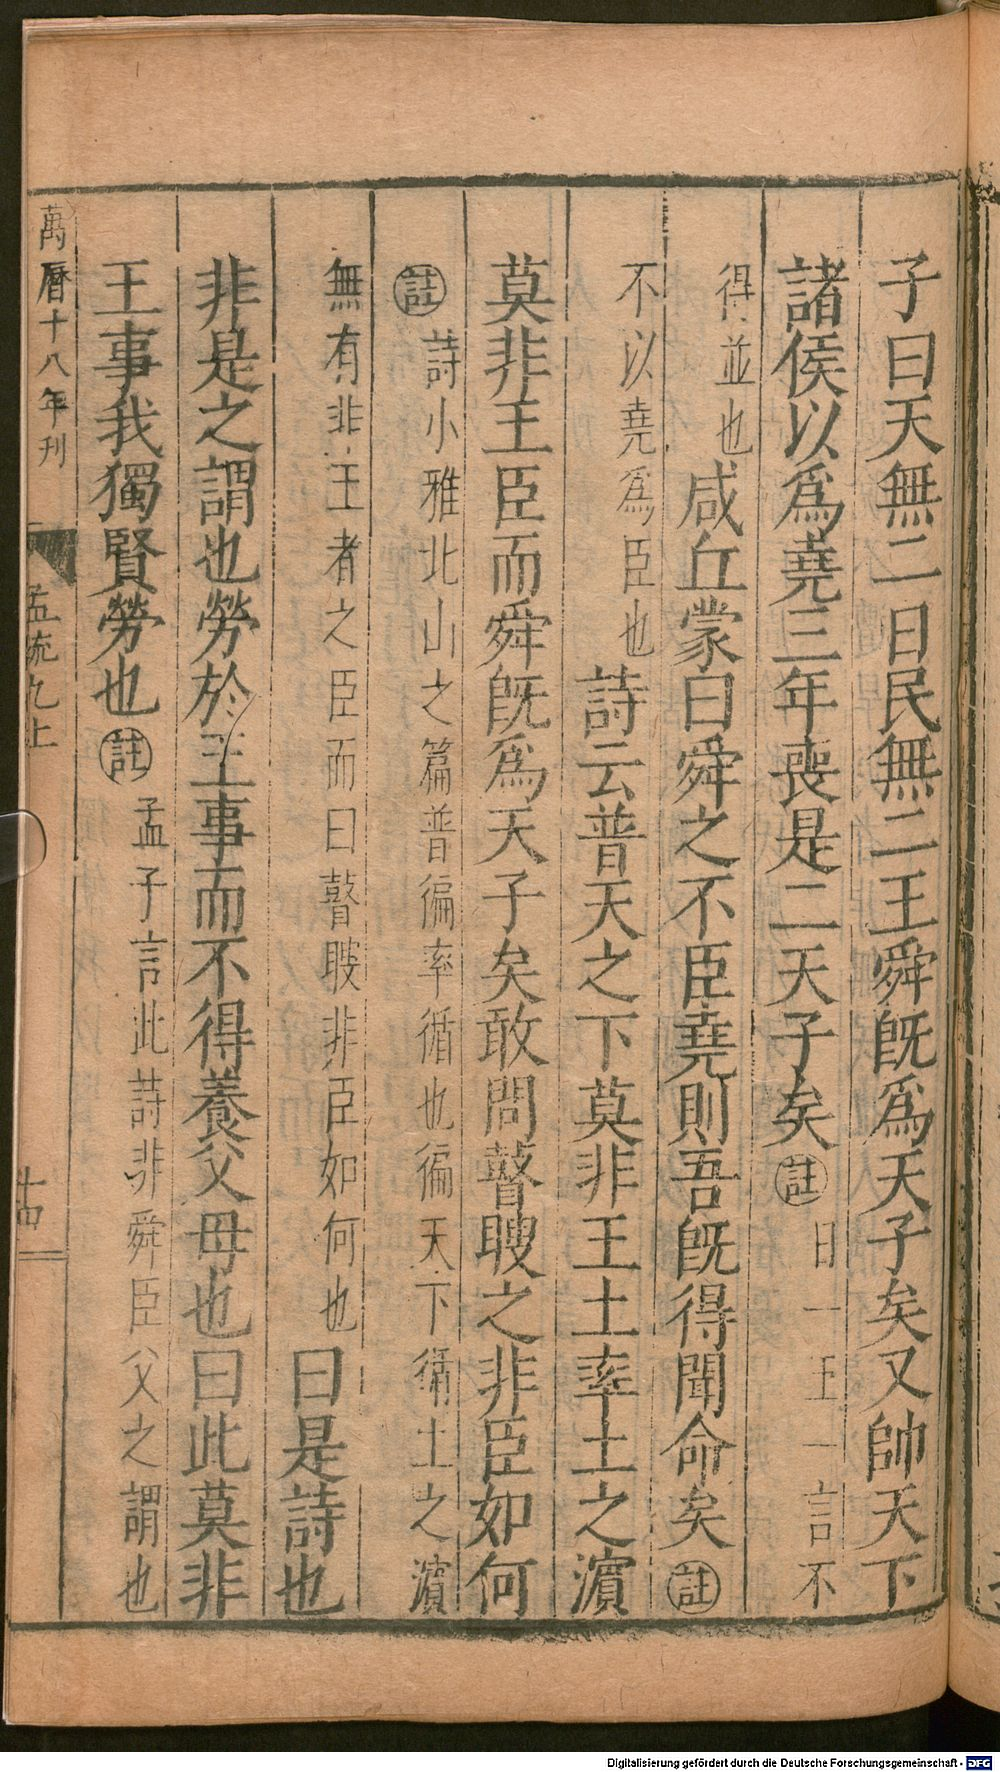 子曰天無二日民無二王舜既爲天子矣又帥天下
諸侯以爲堯三年喪是二天子矣註日一王一言不
得並也咸丘蒙曰舜之不臣堯則吾既得聞命矣註
不以堯爲臣也詩云普天之下莫非王土率土之濱
莫非王臣而舜既爲天子矣敢問瞽瞍之非臣如何
註詩小雅北山之篇普徧率循也徧天下循土之濱
無有非王者之臣而曰瞽瞍非臣如何也曰是詩也
非是之謂也勞於王事而不得養父母也曰此莫非
王事我獨賢勞也註孟子言此詩非舜臣父之謂也
萬曆十八年刊
孟疏九上
十四
Digitalisierung gefördert durch die Deutsche Forschungsgemeinschaft - DFG